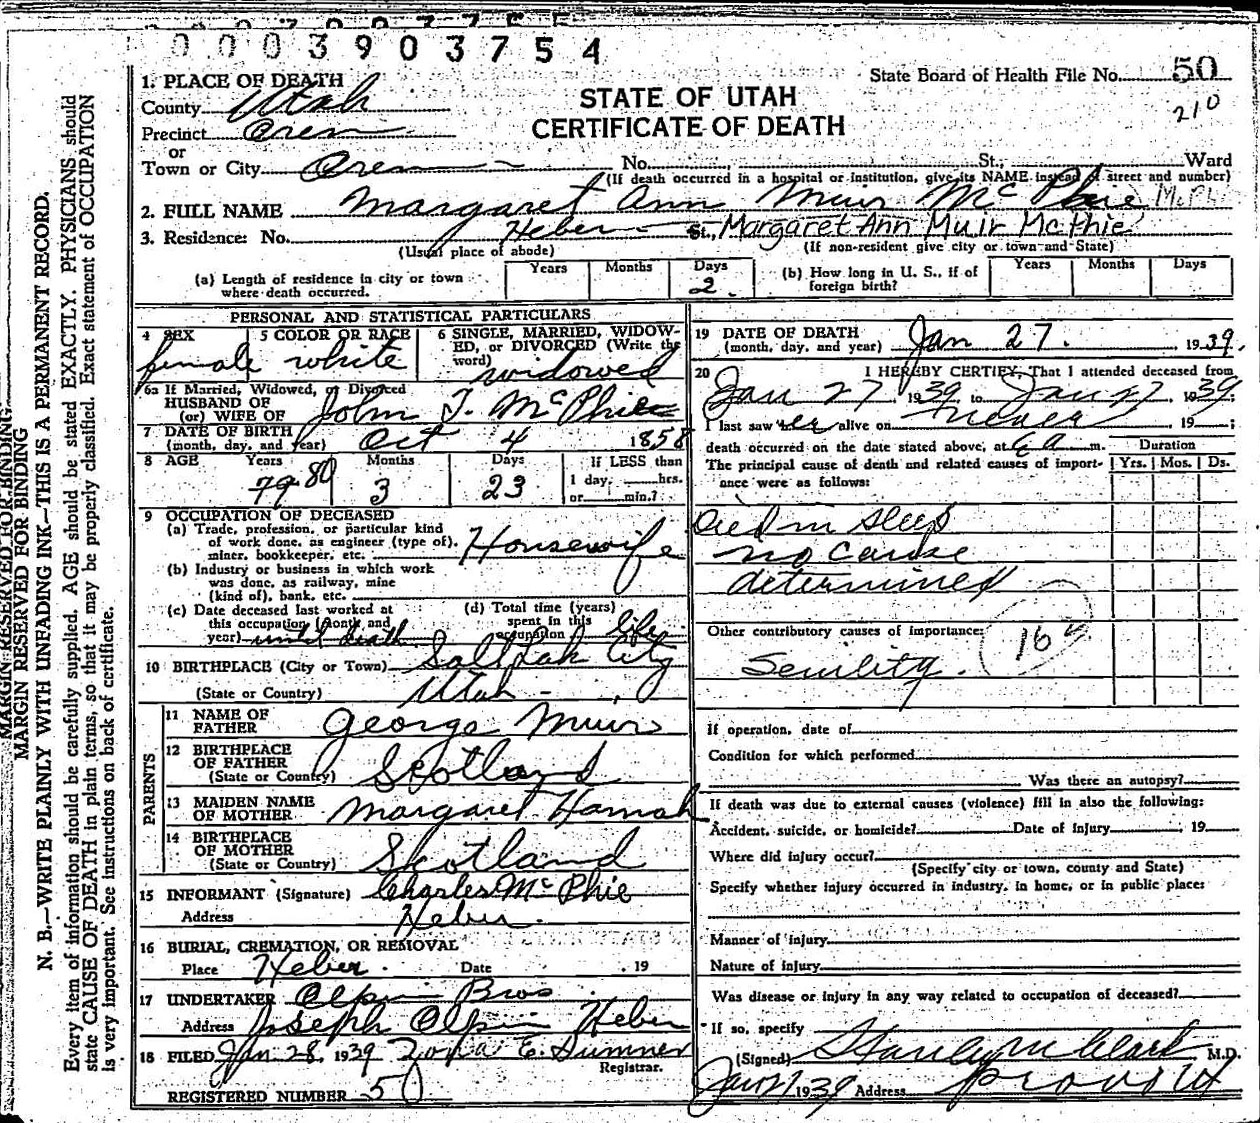 0003903754
State Board of Health File No. 50
210
1. PLACE OF DEATH
County Utah
STATE OF UTAH
CERTIFICATE OF DEATH
Precinct Orem
or
Town or City Orem No. St., Ward
(If death occurred in a hospital or institution, give its NAME instead of street and number)
2. FULL NAME Margaret Ann Muir McPhie
3. Residence: No. Heber St., Margaret Ann Muir McPhie
(Usual place of abode) (If non-resident give city or town and State)
(a) Length of residence in city or town where death occurred. Years Months Days 2 (b) How long in U. S., if of foreign birth? Years Months Days
PERSONAL AND STATISTICAL PARTICULARS
4 SEX female
5 COLOR OR RACE white
6 SINGLE, MARRIED, WIDOWED, or DIVORCED (Write the word) widowed
6a If Married, Widowed, or Divorced
HUSBAND OF
(or) WIFE OF John T. McPhie
7 DATE OF BIRTH
(month, day, and year) Oct 4 1858
8 AGE Years 79 80 Months 3 Days 23 If LESS than 1 day, hrs. or min.?
9 OCCUPATION OF DECEASED
(a) Trade, profession, or particular kind
of work done, as engineer (type of),
miner, bookkeeper, etc. Housewife
(b) Industry or business in which work
was done, as railway, mine
(kind of), bank, etc.
(c) Date deceased last worked at this occupation (month and year) until death (d) Total time (years) spent in this occupation life
10 BIRTHPLACE (City or Town) Salt Lak City
(State or Country) Utah
PARENTS
11 NAME OF FATHER George Muir
12 BIRTHPLACE OF FATHER
(State or Country) Scotland
13 MAIDEN NAME OF MOTHER Margaret Hannah
14 BIRTHPLACE OF MOTHER
(State or Country) Scotland
15 INFORMANT (Signature) Charles McPhie
Address Heber.
16 BURIAL, CREMATION, OR REMOVAL
Place Heber. Date , 19
17 UNDERTAKER Olpin Bros
Address Joseph Olpin Heber
18 FILED Jan 28, 1939 E. Sumner
Registrar.
REGISTERED NUMBER 50
19 DATE OF DEATH
(month, day, and year) Jan 27. 1939.
20 I HEREBY CERTIFY, That I attended deceased from
Jan 27 1939 to Jan 27 1939;
I last saw her alive on never 19 ;
death occurred on the date stated above, at 6 a m. Duration
The principal cause of death and related causes of importance were as follows: Yrs. Mos. Ds.
Died in sleep
no cause
determined
Other contributory causes of importance:
Senility.
If operation, date of
Condition for which performed
Was there an autopsy?
If death was due to external causes (violence) fill in also the following:
Accident, suicide, or homicide? Date of injury , 19
Where did injury occur?
(Specify city or town, county and State)
Specify whether injury occurred in industry, in home, or in public place:
Manner of injury
Nature of injury
Was disease or injury in any way related to occupation of deceased?
If so, specify
(Signed) Clark M.D.
Jan 27 1939 Address Provo Ut
MARGIN RESERVED FOR BINDING
MARGIN RESERVED FOR BINDING
N. B.—WRITE PLAINLY WITH UNFADING INK—THIS IS A PERMANENT RECORD.
Every item of information should be carefully supplied. AGE should be stated EXACTLY. PHYSICIANS should
state CAUSE OF DEATH in plain terms, so that it may be properly classified. Exact statement of OCCUPATION
is very important. See instructions on back of certificate.